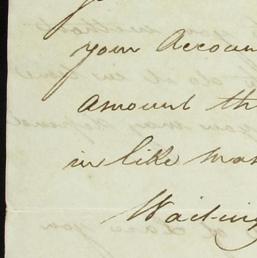 your Accoun
amount th
in like man
Waiting